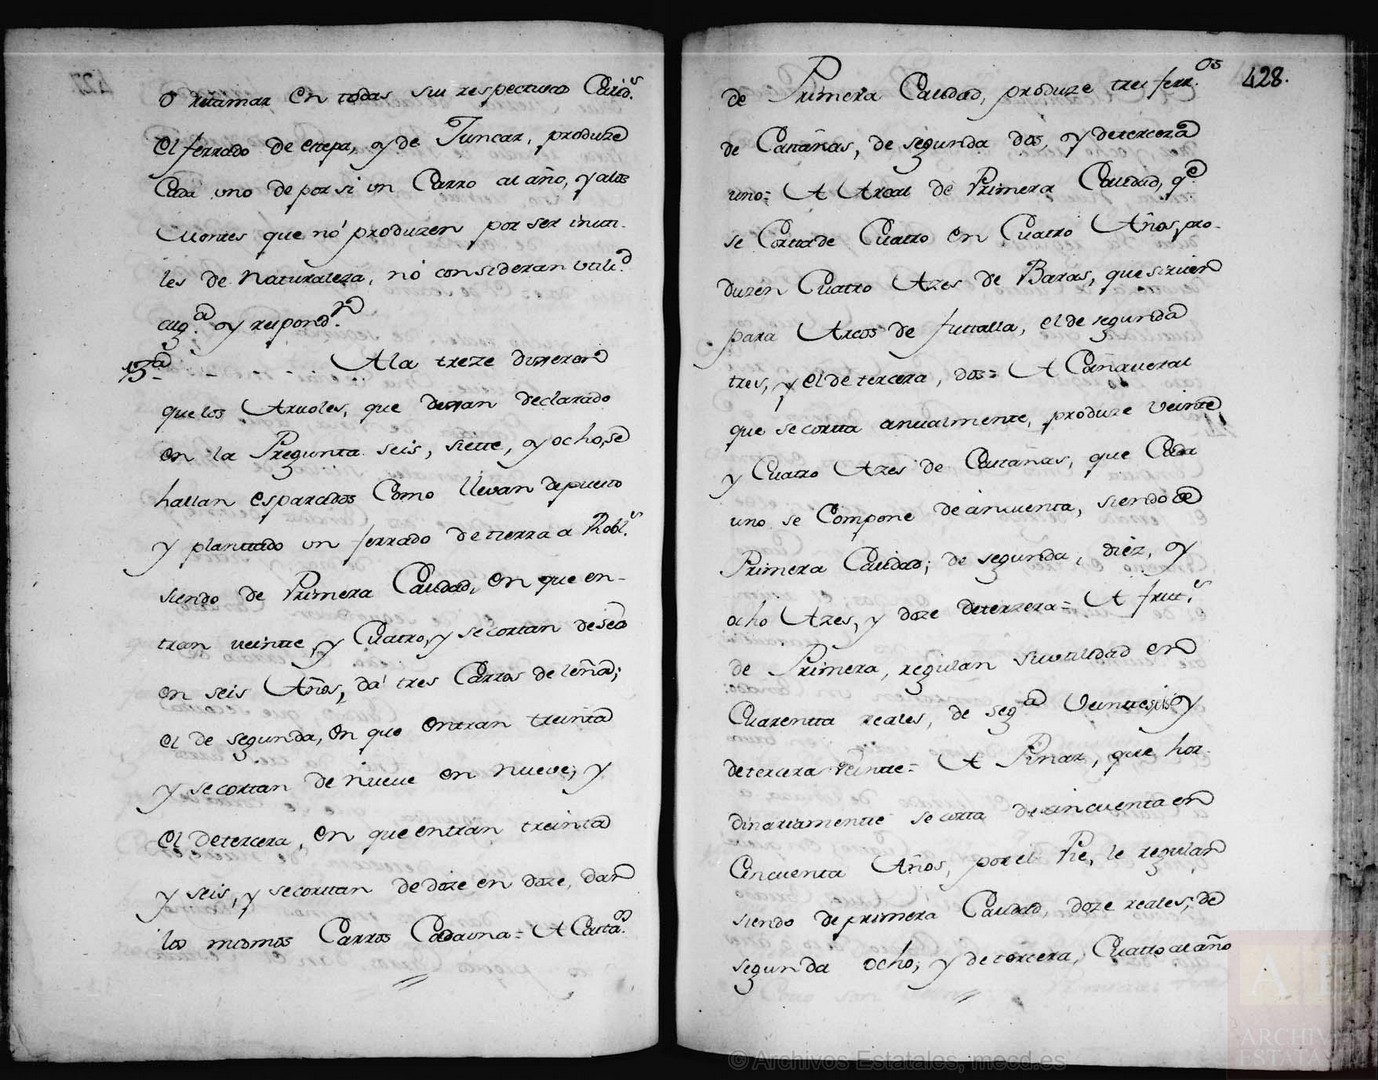 o retamar en todas sus respectivas Calid.s
el ferrado de estepa, y de Juncar, produze
Cada uno de por si un Carro al año, y alos
Montes que nó produzen por ser inuti-
les de Naturaleza, nó consideran utili.d
alg.a y respond.n
13a - - - - A la treze dixeron
que los Arvoles, que dexan declarado
en la Pregunta seis, siette, y ocho, se
hallan esparcidos Como llevan depuesto
y planttado un ferrado de tierra a Robl.s
siendo de Primera Calidad, en que en-
tran veintte, y Cuatro, y se cortan de seis
en seis Años, dá tres Carros de leña;
el de segunda, en que entran treinta
y se cortan de nueve en nueve; y
el de tercera, en que entran treinta
y seis, y se corttan de doze en doze, dan
los mismos Carros Cada una= A Casta.os
428.
de Primera Calidad, produze tres ferr.os
de Castañas, de segunda dos, y de tercera
uno= A Areal de Primera Calidad, q.e
se Cortta de Cuatro en Cuatro Años, pro-
duzen Cuatro Azes de Baras, que sirven
para Arcos de futtalla, el de segunda
tres, y el de tercera, dos= A Cañaveral
que se cortta anualmente, produze veinte
y Cuatro Azes de Castañas, que Cada
uno se Compone de cincuenta, siendo de
Primera Calidad; de segunda, diez, y
ocho Azes, y doze de terzera= A frut.s
de Primera, regulan su utilidad en
Cuarentta reales, de seg.da Veinteseis y
de tercera veintte= A Pinar, que hor-
dinariamentte se cortta de cincuenta en
Cincuenta Años, por el Pie, le regulan
siendo de primera Calidad, doze reales, de
segunda ocho; y de tercera, Cuatro al año
© Archivos Estatales, mecd.es
AE
ARCHIVOS
ESTATALES